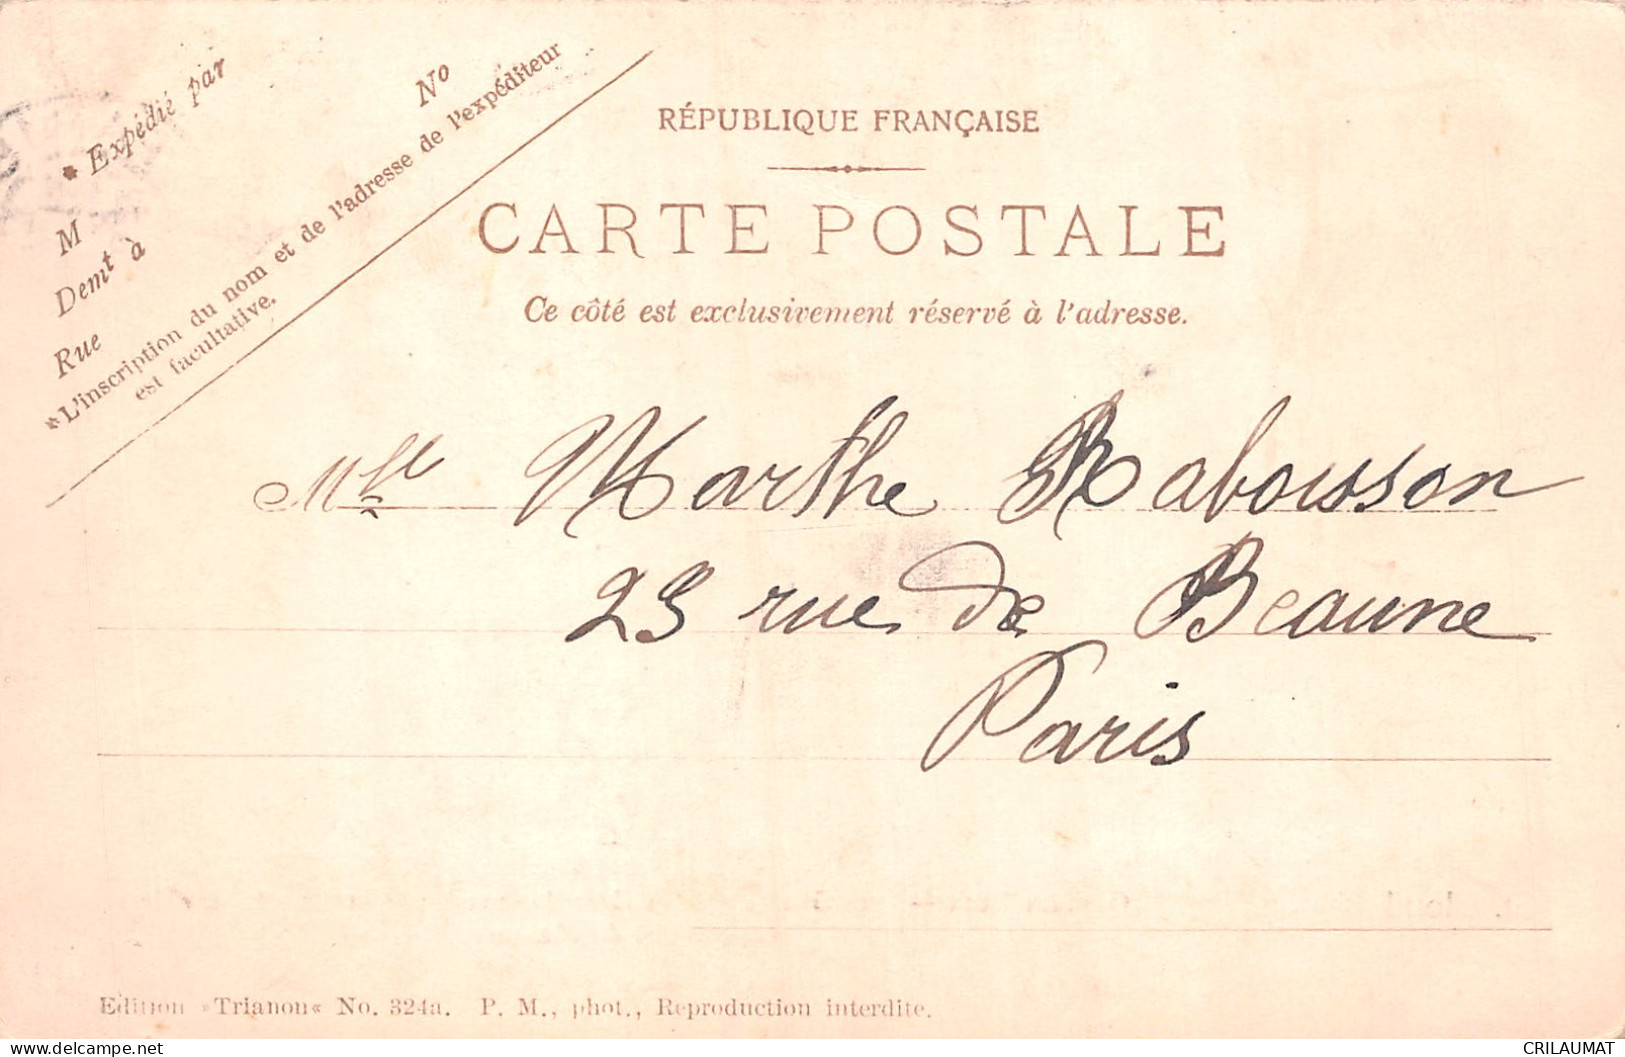 * Expédié par
M
Nº
Demt à
Rue
*L'inscription du nom et de l'adresse de l'expéditeur
est facultative.
RÉPUBLIQUE FRANÇAISE
CARTE POSTALE
Ce côté est exclusivement réservé à l'adresse.
Mlle Marthe Rabousson
23 rue de Beaune
Paris
Edition »Trianon« No. 324a. P. M., phot., Reproduction interdite.
delcampe.net
CRILAUMAT